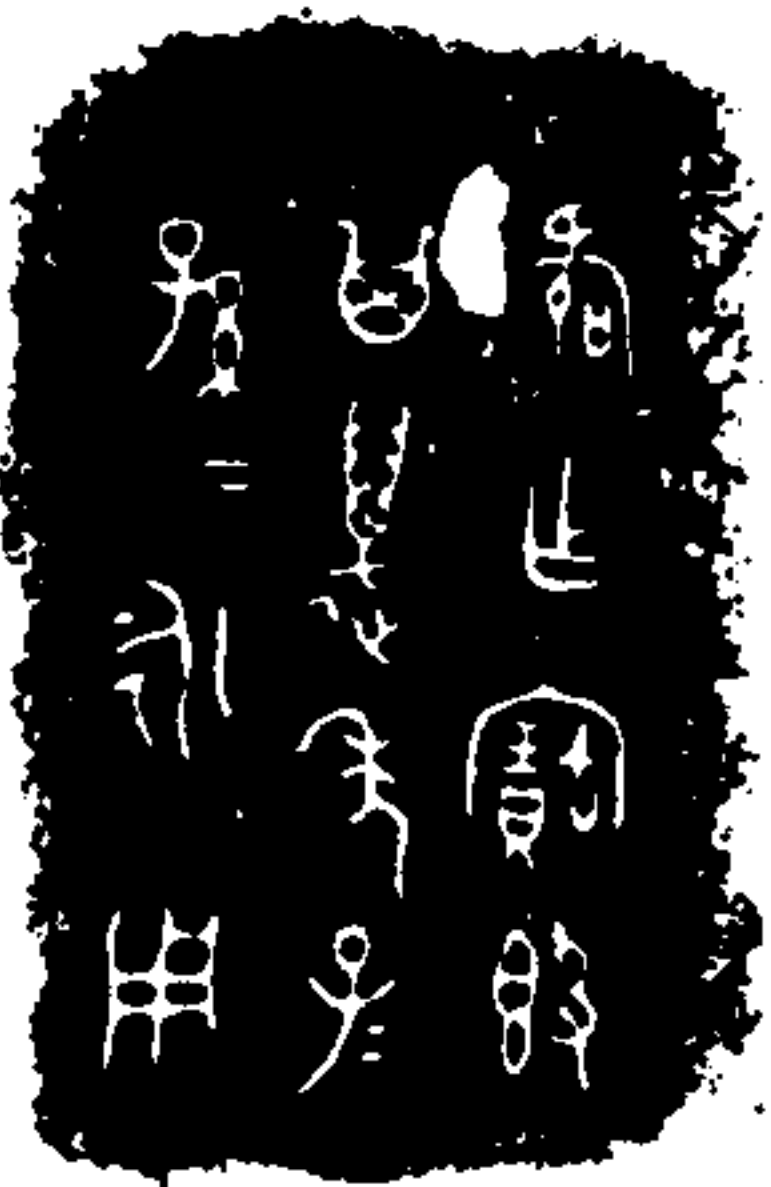 乍寶般
其萬年子=
孫=永用